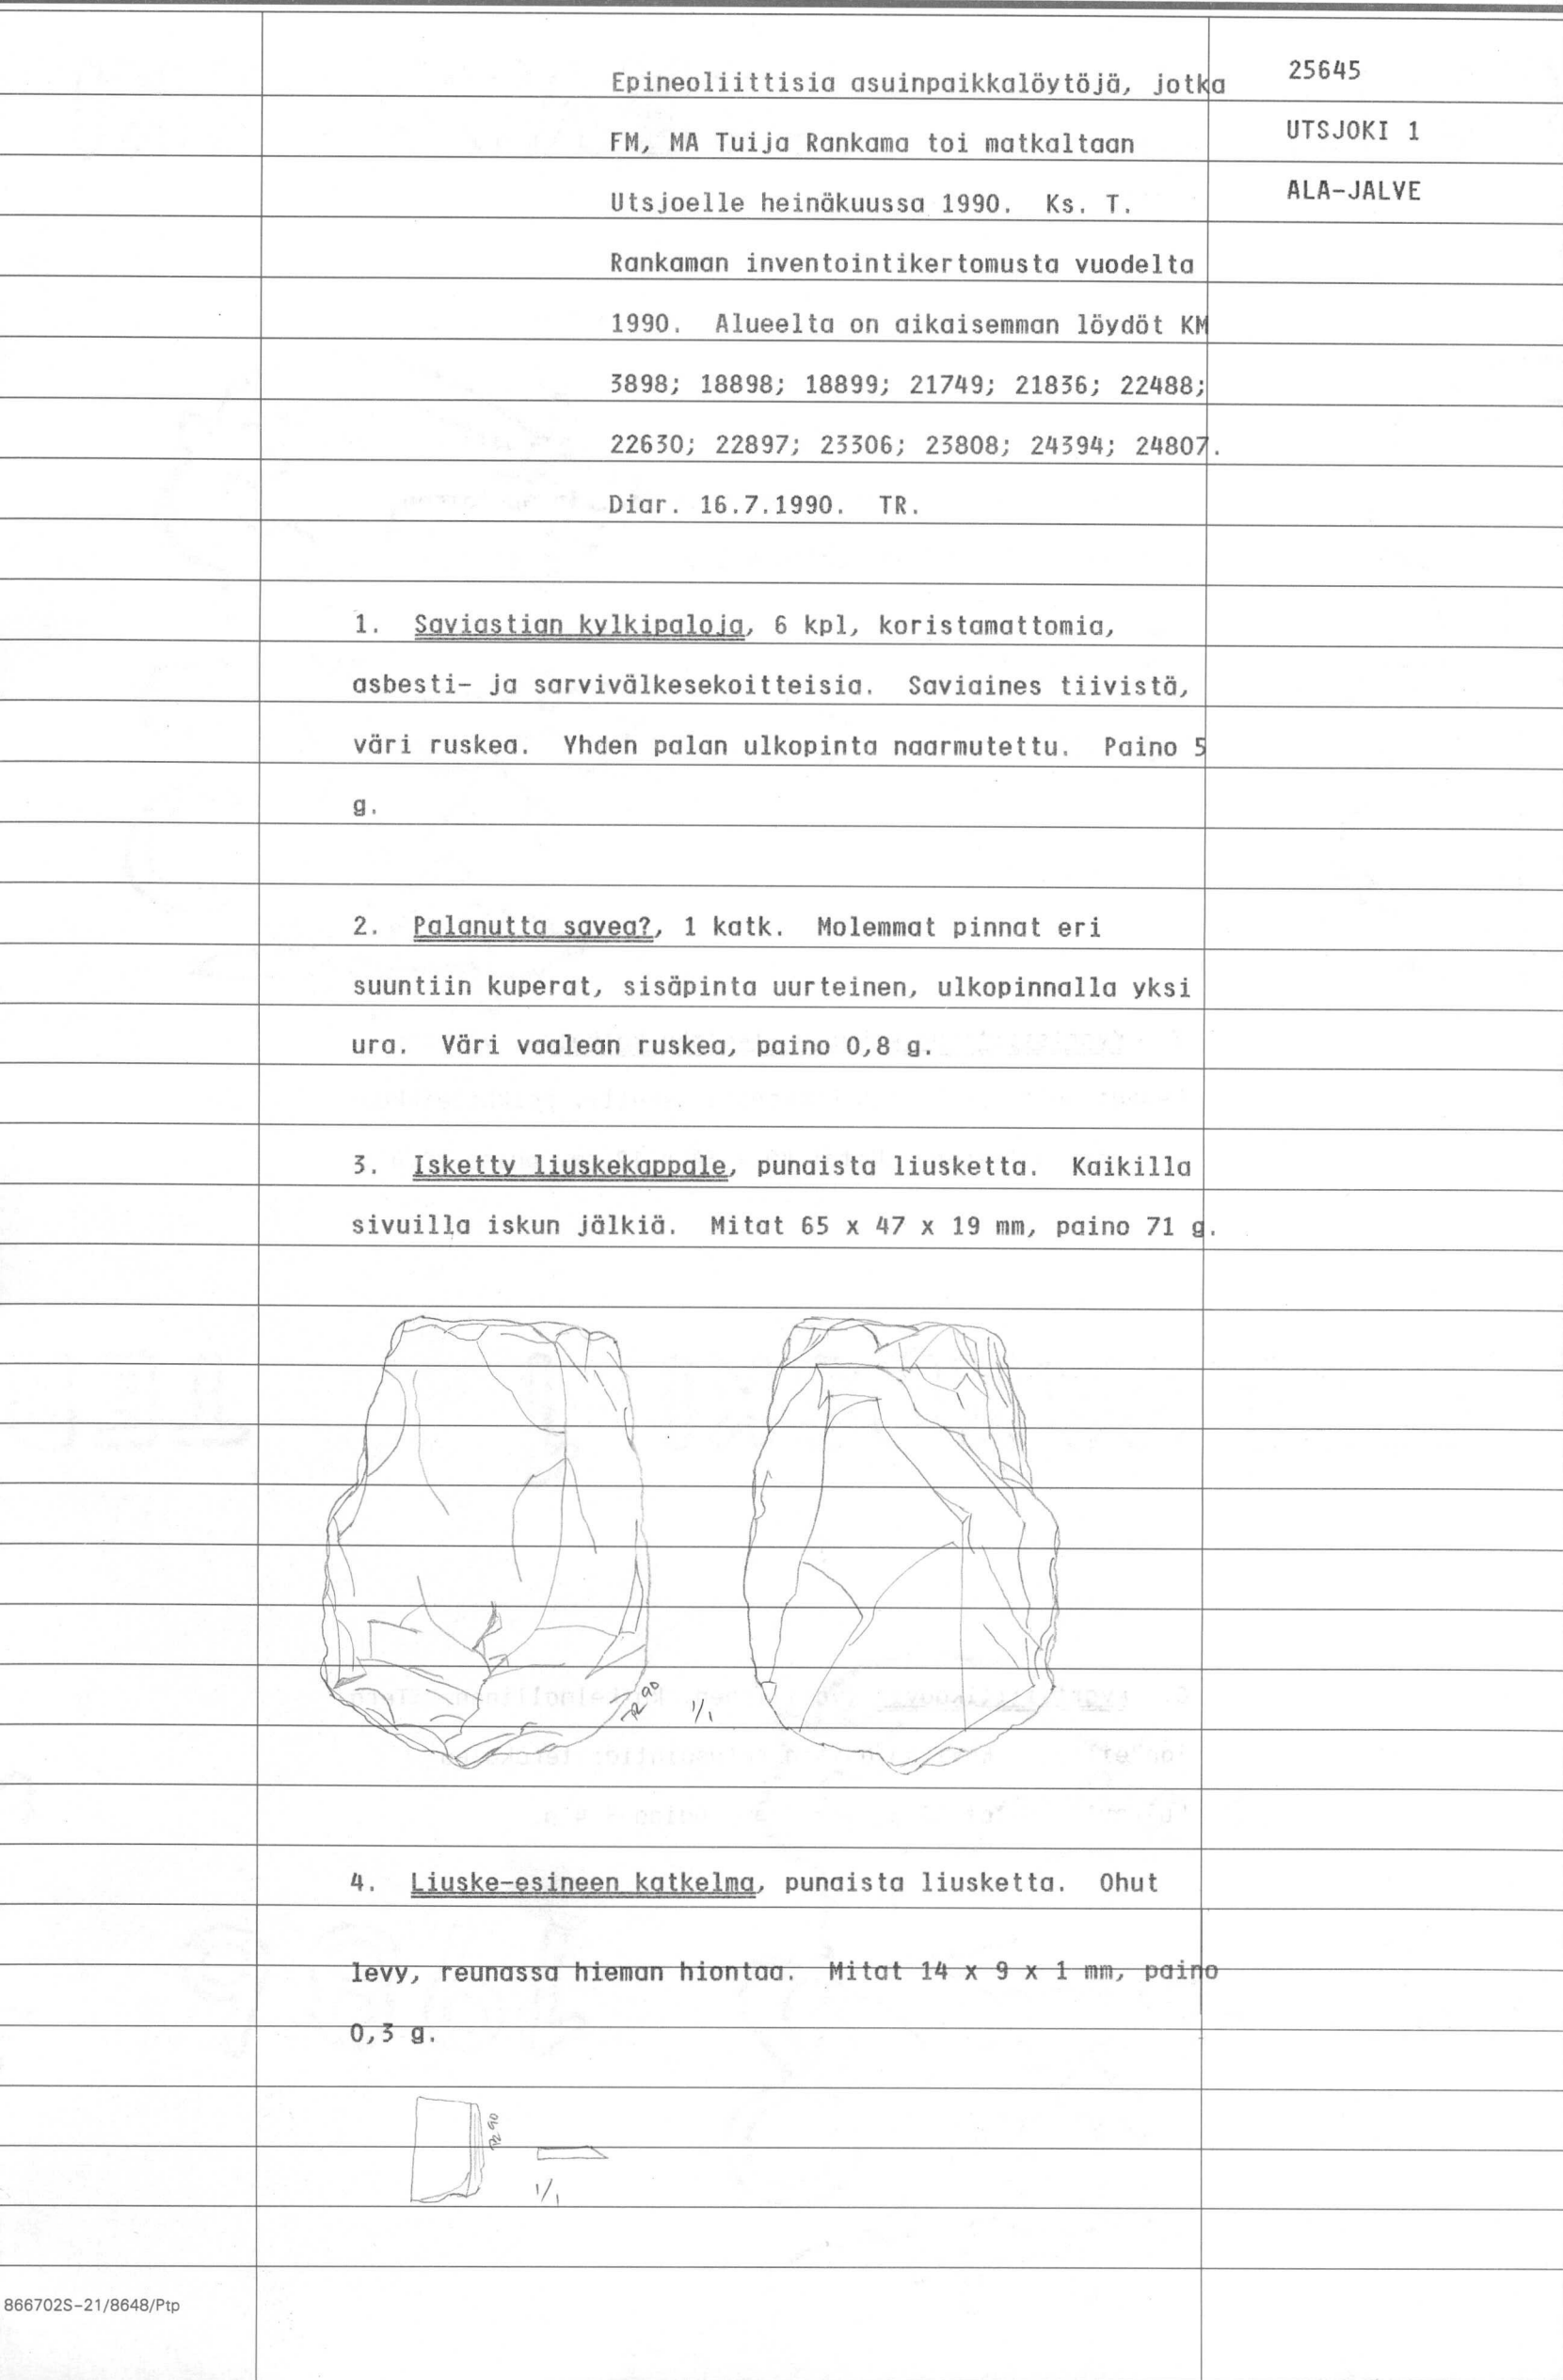 Epineoliittisia asuinpaikkalöytöjä, jotka
FM, MA Tuija Rankama toi matkaltaan
Utsjoelle heinäkuussa 1990. Ks. T.
Rankaman inventointikertomusta vuodelta
1990. Alueelta on aikaisemman löydöt KM
3898; 18898; 18899; 21749; 21836; 22488;
22630; 22897; 23306; 23808; 24394; 24807.
Diar. 16.7.1990. TR.
25645
UTSJOKI 1
ALA-JALVE
1. Saviastian kylkipaloja, 6 kpl, koristamattomia,
asbesti- ja sarvivälkesekoitteisia. Saviaines tiivistä,
väri ruskea. Yhden palan ulkopinta naarmutettu. Paino 5
g.
2. Palanutta savea?, 1 katk. Molemmat pinnat eri
suuntiin kuperat, sisäpinta uurteinen, ulkopinnalla yksi
ura. Väri vaalean ruskea, paino 0,8 g.
3. Isketty liuskekappale, punaista liusketta. Kaikilla
sivuilla iskun jälkiä. Mitat 65 x 47 x 19 mm, paino 71 g.
TR 90
1/1
4. Liuske-esineen katkelma, punaista liusketta. Ohut
levy, reunassa hieman hiontaa. Mitat 14 x 9 x 1 mm, paino
0,3 g.
TR 90
1/1
866702S-21/8648/Ptp